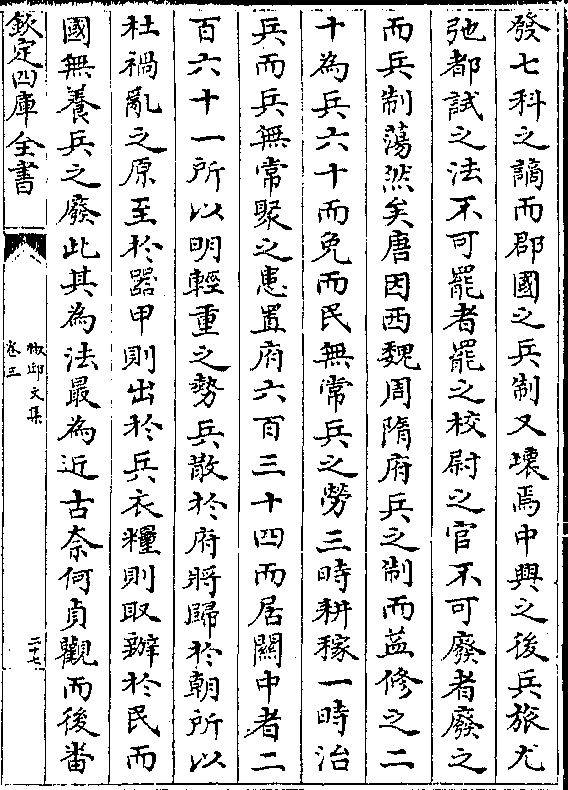 發七科之謫而郡國之兵制又壊焉中興之後兵旅尤
弛都試之法不可罷者罷之校尉之官不可廢者廢之
而兵制蕩然矣唐因西魏周隋府兵之制而益修之二
十為兵六十而免而民無常兵之勞三時耕稼一時治
兵而兵無常聚之患置府六百三十四而居關中者二
百六十一所以明輕重之勢兵散於府將歸於朝所以
杜禍亂之原至於器甲則出於兵衣糧則取辦於民而
國無養兵之廢此其為法最為近古奈何貞觀而後畨
欽定四庫全書
椒邱文集
卷三
二十七